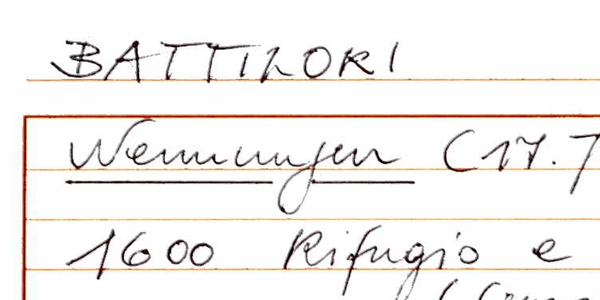 BATTILORI
Wennungen (17.7
1600 Rifugio e